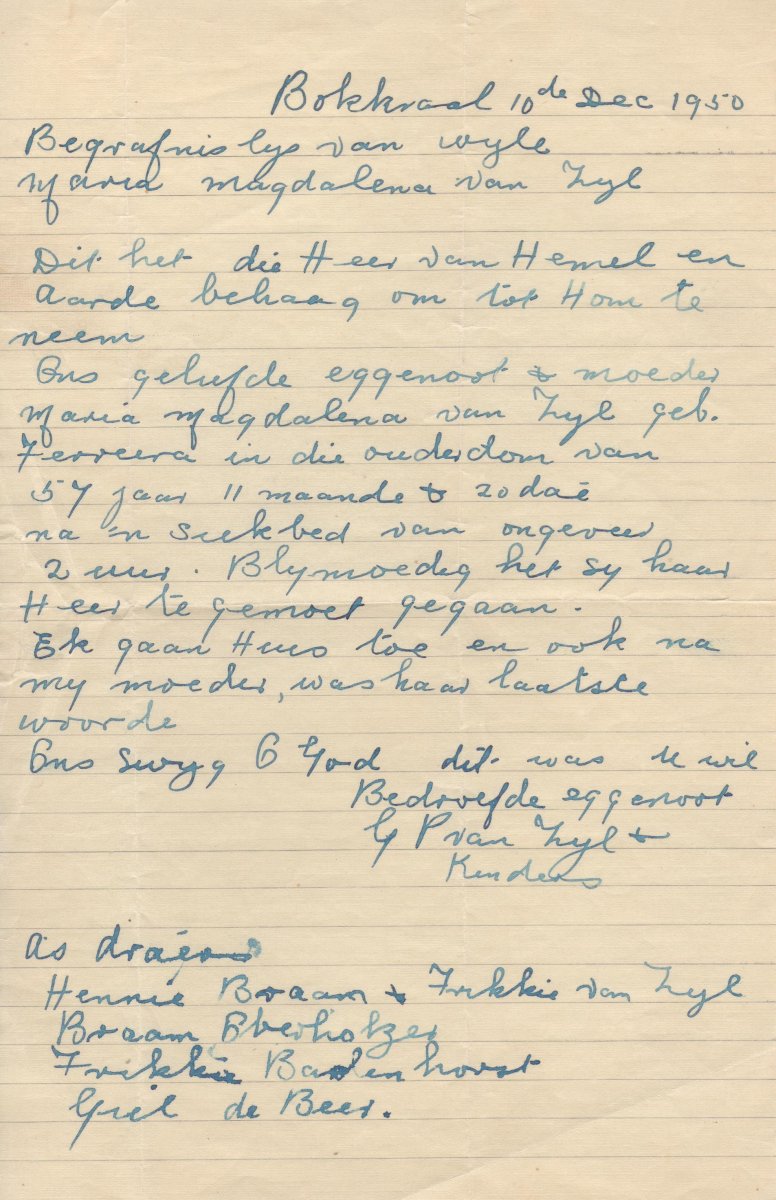 Bokkraal 10de Dec 1950
Begrafnis lys van wyle
Maria Magdalena van Zyl
Dit het die Heer van Hemel en
Aarde behaag om tot Hom te
neem
Ons geliefde eggenoot & moeder
Maria Magdalena van Zyl geb.
Ferreira in die ouderdom van
57 jaar 11 maande & 20 daë
na 'n siekbed van ongeveer
2 uur. Blymoedig het sy haar
Heer te gemoet gegaan.
Ek gaan Huis toe en ook na
my moeder, was haar laatste
woorde
Ons swyg O God dit was U wil
Bedroefde eggenoot
G P van Zyl &
Kinders
As draërs
Hennie Braam & Frikkie van Zyl
Braam Oberholzer
Frikkie Badenhorst
Giel de Beer.